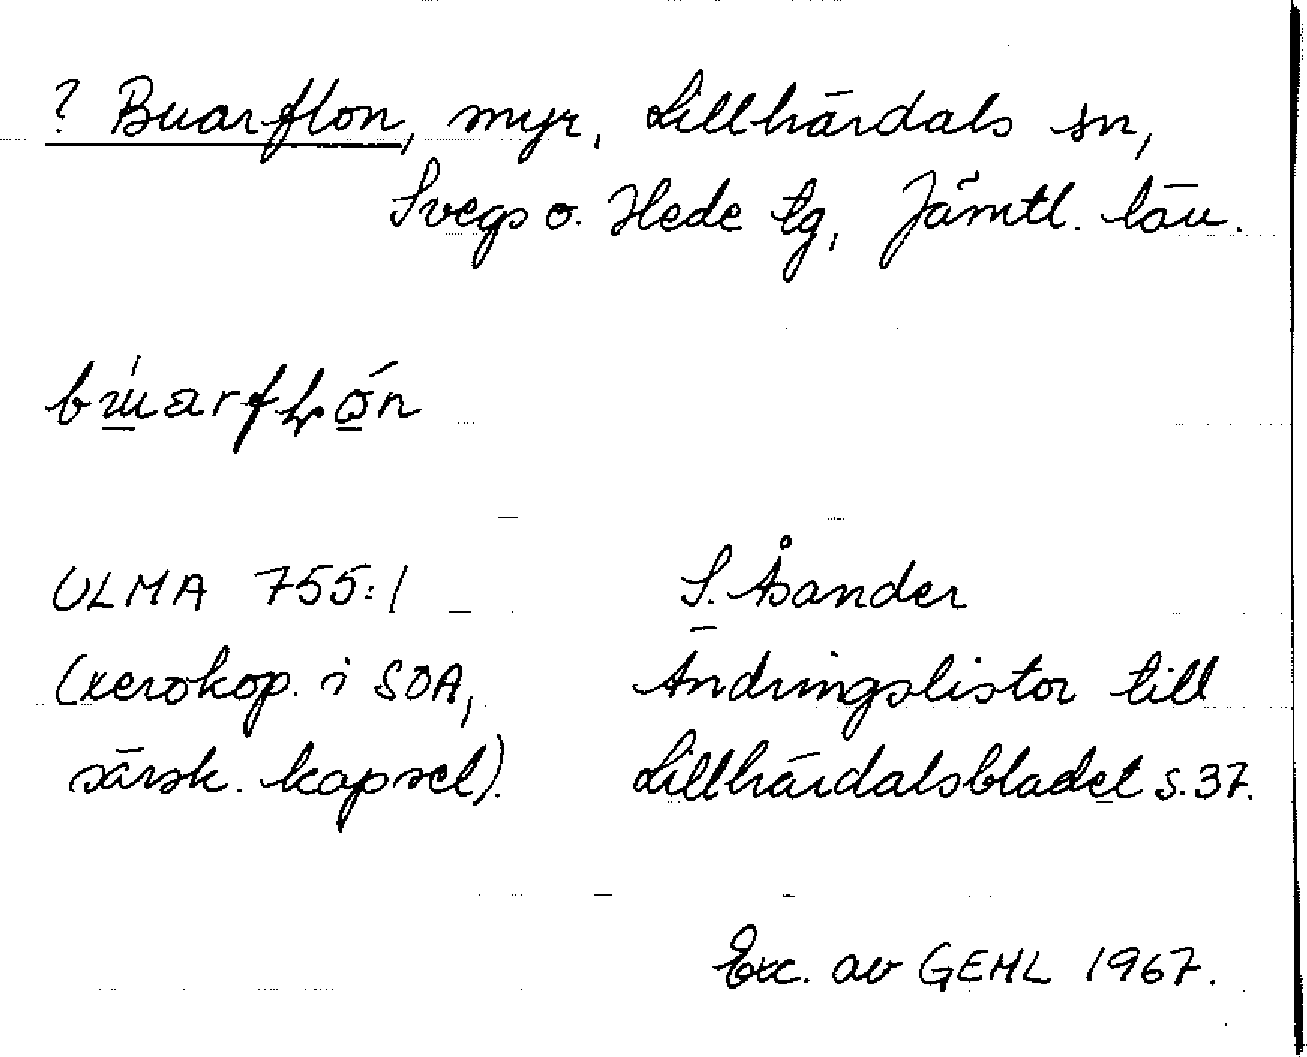 ? Buarflon, myr, Lillhärdals sn,
Svegs o. Hede tg, Jämtl. län.
ULMA 755:1
(xerokop. i SOA,
särsk. kapsel).
S. Åsander
Ändringslistor till
Lillhärdalsbladet s. 37.
Exc. av GEHL 1967.